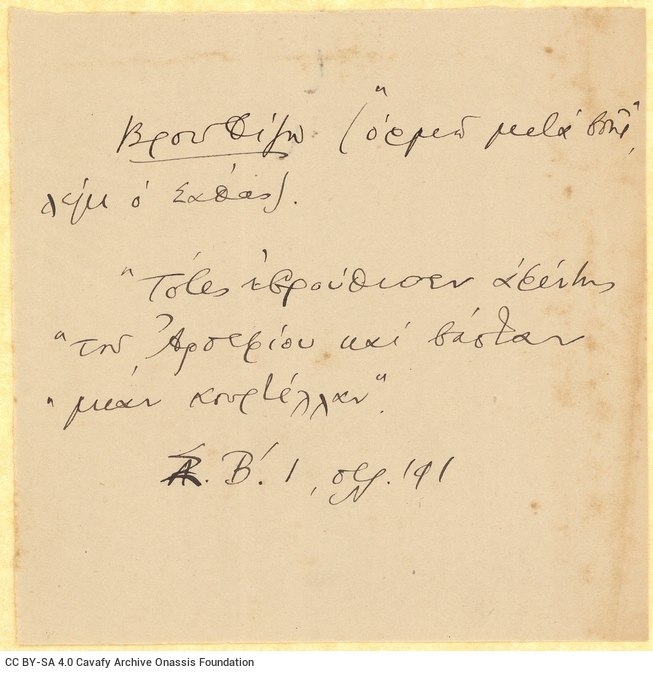 Βρουθίζω ("ὁρμῶ μετὰ βοῆς",
λέγει ὁ Σάθας).
"Τότες ἐβρούθισεν ἀφέντης
"τοῦ Ἀρσεφίου καὶ βάσταν
"μιὰν κουρτέλλαν".
Σ. Β΄. 1, σελ. 191
CC BY-SA 4.0 Cavafy Archive Onassis Foundation